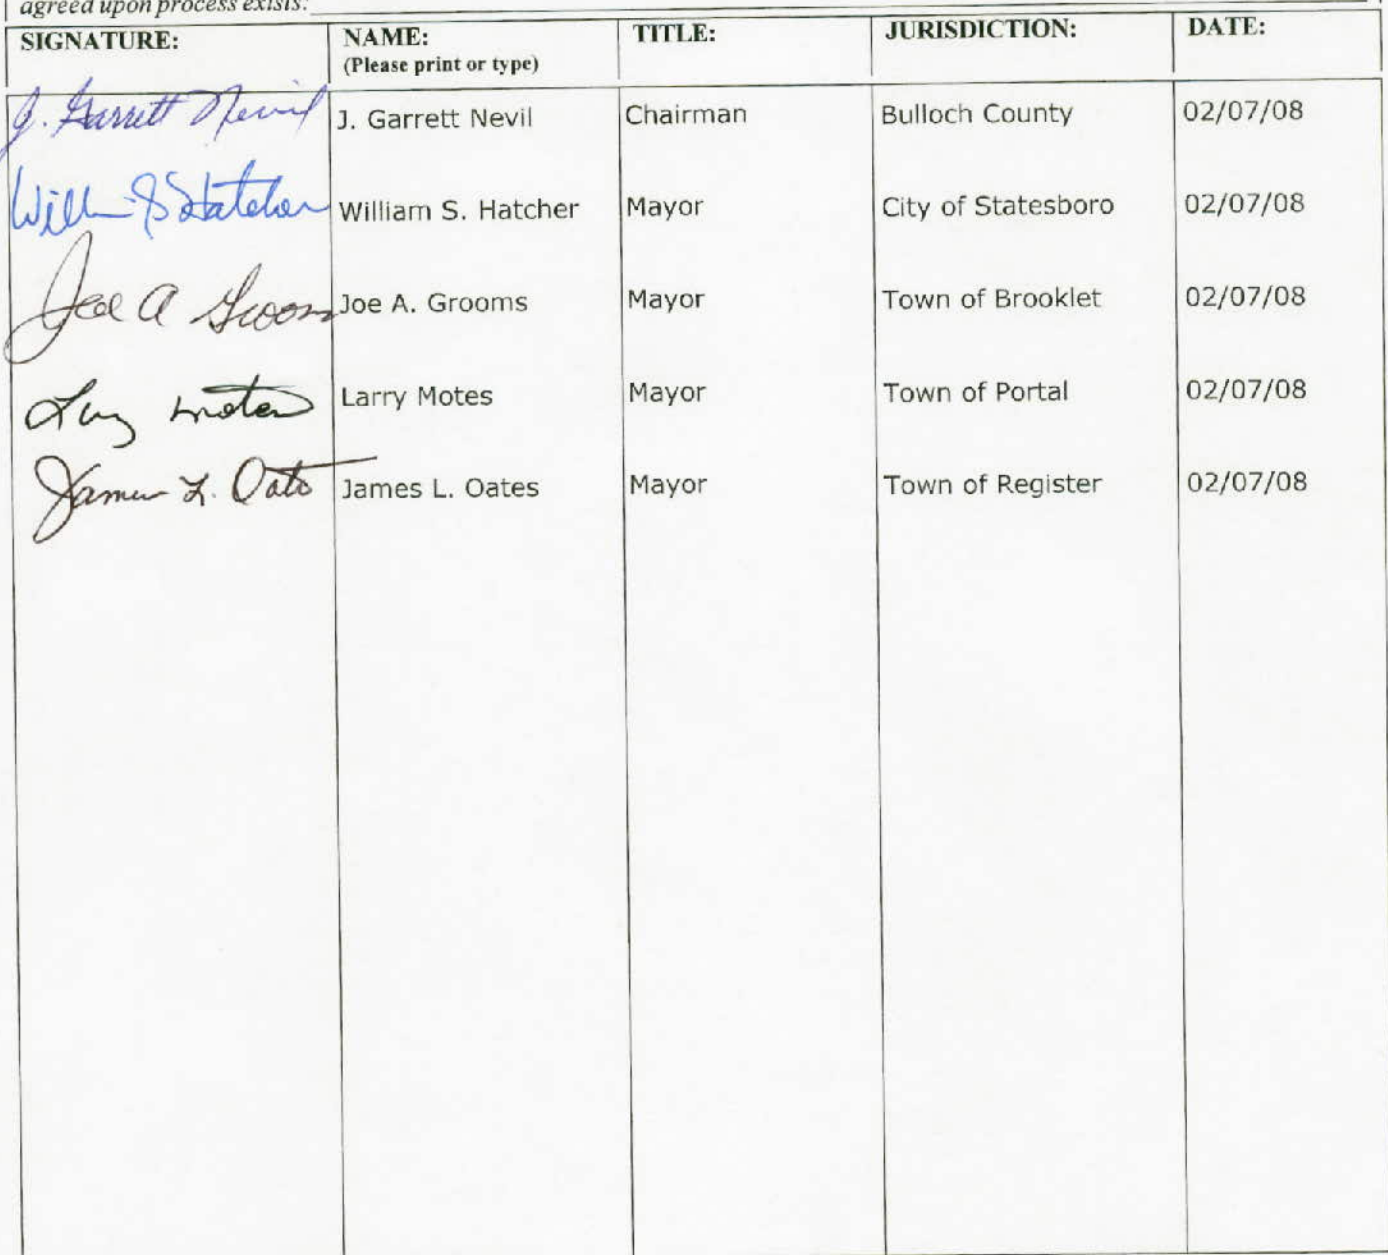 agreed upon process exists:
SIGNATURE: NAME: TITLE: JURISDICTION: DATE:
(Please print or type)
J. Garrett Nevil J. Garrett Nevil Chairman Bulloch County 02/07/08
William S Hatcher William S. Hatcher Mayor City of Statesboro 02/07/08
Joe A Grooms Joe A. Grooms Mayor Town of Brooklet 02/07/08
Larry Motes Larry Motes Mayor Town of Portal 02/07/08
James L. Oates James L. Oates Mayor Town of Register 02/07/08